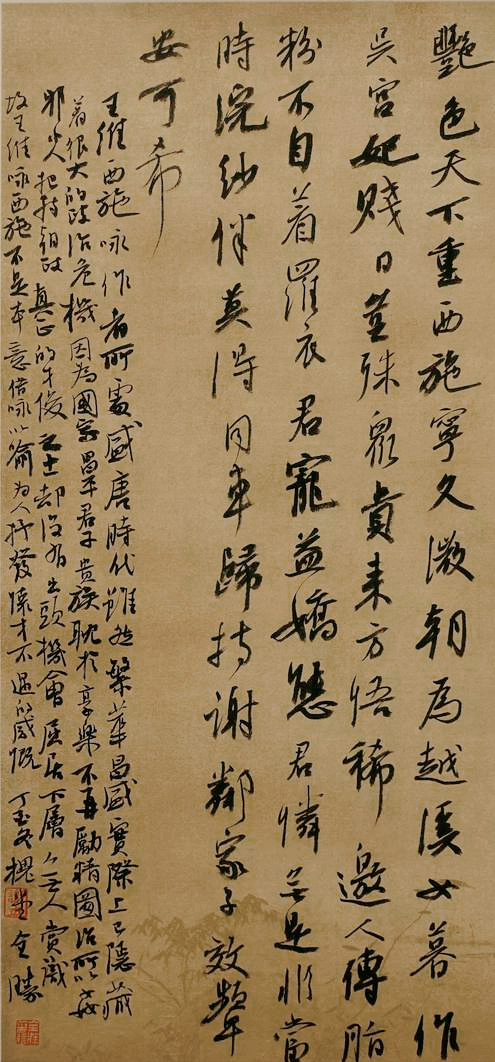 艷色天下重西施寧久微朝為越溪女暮作
吳宮妃賤日豈殊衆貴来方悟稀邀人傳脂
粉不自着羅衣君寵益嬌態君憐無是非當
時浣紗伴莫得同車歸持謝鄰家子效顰
安可希
王維西施咏作者所處盛唐時代雖然繁華昌盛實際上已隱藏
着很大的政治危機因為國家昌平君子貴族耽於享樂不再勵精圖治所以奸
邪小人把持朝政真正的才俊之士却没有出頭機會屈居下層無人賞識
故王維咏西施不是本意借咏以喻為人抒發懷才不遇的感慨